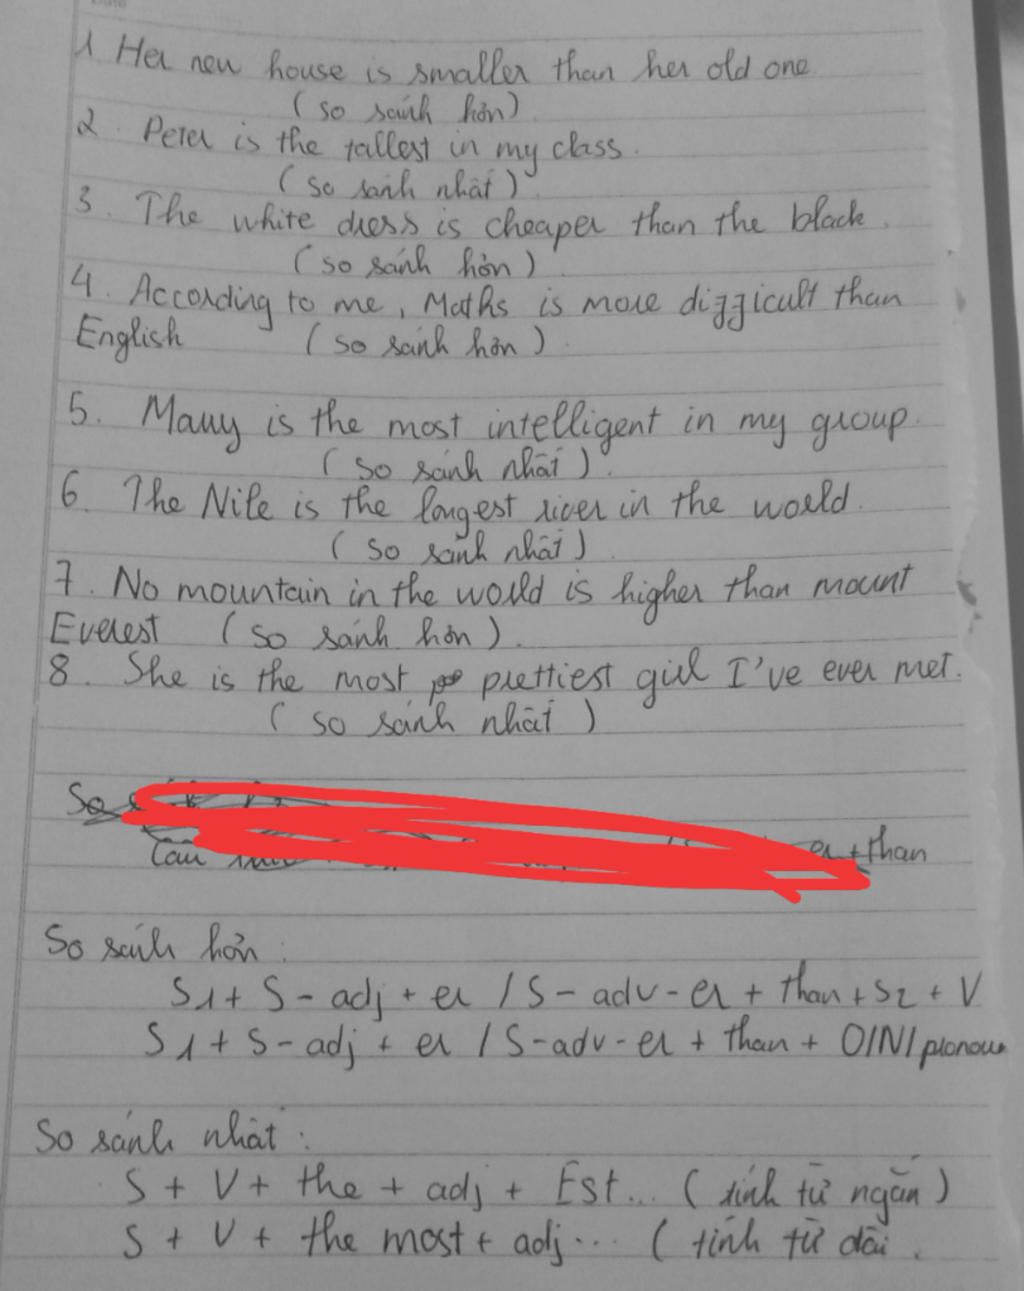 1 Her new house is smaller than her old one
(so sánh hơn)
2. Peter is the tallest in my class.
(so sánh nhất)
3. The white dress is cheaper than the black.
(so sánh hơn)
4. According to me, Maths is more difficult than
English (so sánh hơn).
5. Mary is the most intelligent in my group.
(so sánh nhất).
6. The Nile is the longest river in the world.
(so sánh nhất)
7. No mountain in the world is higher than mount
Everest (so sánh hơn).
8. She is the most prettiest girl I've ever met.
(so sánh nhất)
So
er + than
So sánh hơn:
S1 + S - adj + er / S - adv - er + than + S2 + V
S1 + S - adj + er / S - adv - er + than + O/N/pronoun
So sánh nhất:
S + V + the + adj + Est... (tính từ ngắn)
S + V + the most + adj... (tính từ dài.